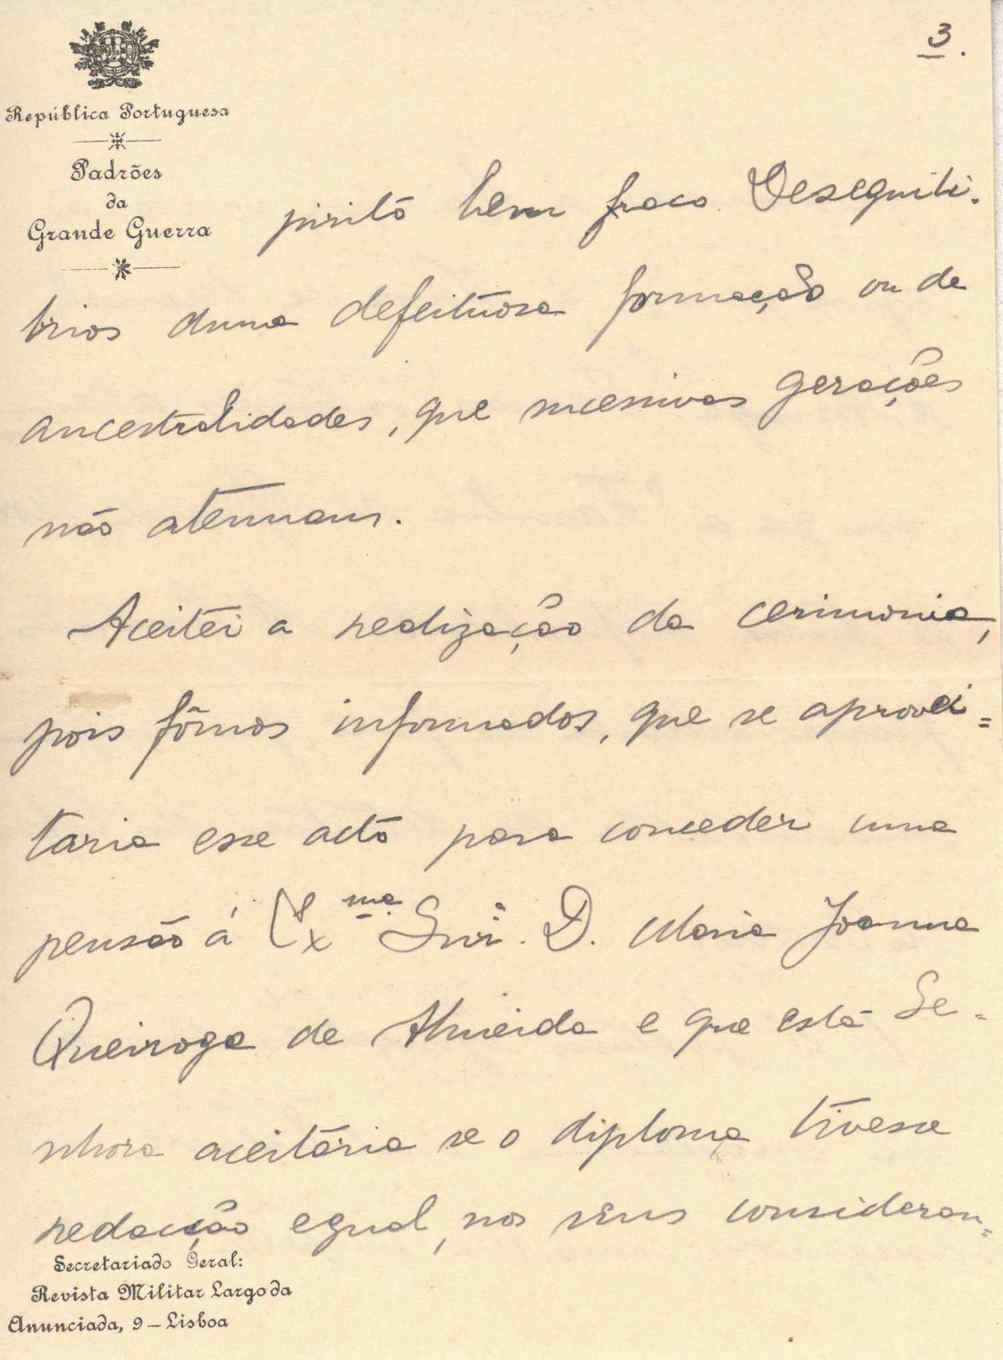 3.
República Portuguesa
Padrões
da
Grande Guerra
pirito bem fraco. Desequili-
brios duma defeituosa formação ou de
ancestralidades, que sucessivas gerações
não atenuam.
Aceitei a realização da cerimonia,
pois fômos informados, que se aprovei=
taria esse acto para conceder uma
pensão á Exma Snrª. D. Maria Joanna
Queiroga de Almeida e que esta Se-
nhora aceitaria se o diploma tivesse
redacção egual, nos seus consideran=
Secretariado Geral:
Revista Militar Largo da
Anunciada, 9 – Lisboa